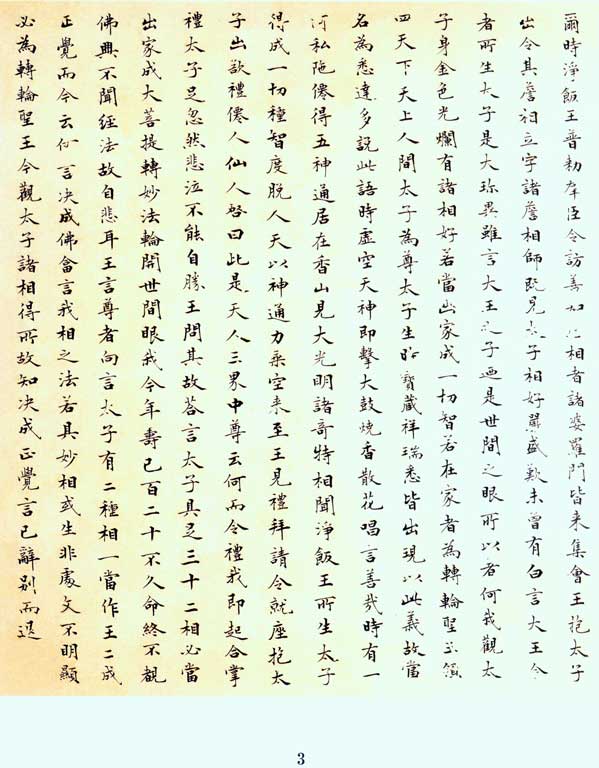 爾時淨飯王普勅群臣令訪善知占相者諸婆羅門皆来集會王抱太子
出令其詹相立字諸詹相師既見太子相好嚴盛歎未曾有白言大王今
者所生太子是大珎異雖言大王之子迺是世間之眼所以者何我觀太
子身金色光爛有諸相好若當出家成一切智若在家者為轉輪聖王領
四天下天上人間太子為尊太子生時寶藏祥瑞悉皆出現以此義故當
名為悉達多說此語時虛空天神即擊大鼓燒香散花唱言善哉時有一
阿私陁僊得五神通居在香山見大光明諸奇特相聞淨飯王所生太子
得成一切種智度脫人天以神通力乗空来至王見禮拜請令就座抱太
子出欲禮僊人仙人啓曰此是天人三界中尊云何而令禮我即起合掌
禮太子足忽然悲泣不能自勝王問其故荅言太子具足三十二相必當
出家成大菩提轉妙法輪開世間眼我今年壽已百二十不久命終不覩
佛興不聞經法故自悲耳王言尊者向言太子有二種相一當作王二成
正覺而今云何言决成佛僉言我相之法若具妙相或生非處文不明顯
必為轉輪聖王今觀太子諸相得所故知决成正覺言已辭别而退
3